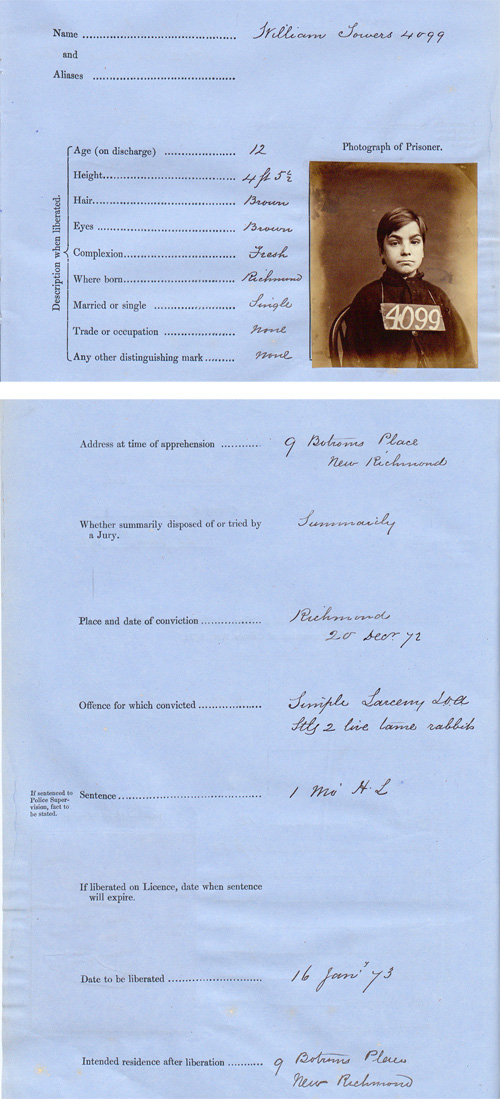 Name ........................................ William Towers 4099
and
Aliases .....................................
Description when liberated.
Age (on discharge) .................. 12
Height.................................... 4 ft 5 ½
Hair........................................ Brown
Eyes ...................................... Brown
Complexion ........................... Fresh
Where born............................ Richmond
Married or single .................. Single
Trade or occupation .............. none
Any other distinguishing mark ......... none
Photograph of Prisoner.
4099
Address at time of apprehension ........... 9 Botroms Place
New Richmond
Whether summarily disposed of or tried by
a Jury. Summarily
Place and date of conviction ................. Richmond
20 Decr 72
Offence for which convicted .................. Simple Larceny
Stlg 2 live tame rabbits
If sentenced to
Police Super-
vision, fact to
be stated.
Sentence .......................................... 1 Mo H. L
If liberated on Licence, date when sentence
will expire.
Date to be liberated ........................... 16 Jany 73
Intended residence after liberation ........... 9 Botroms Place
New Richmond